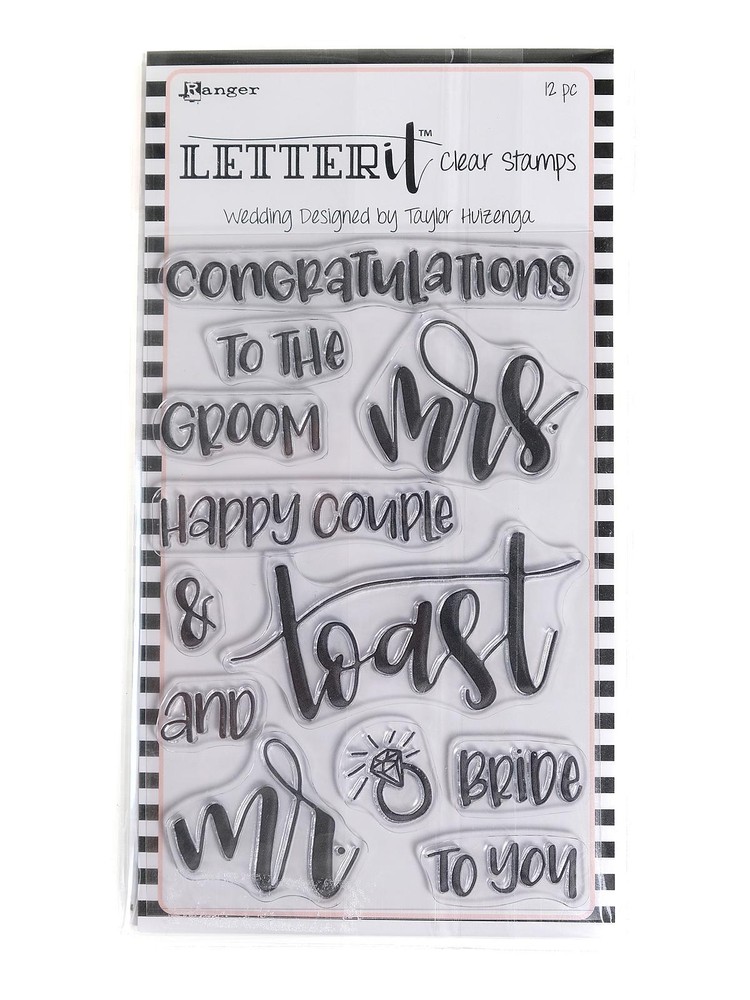 Ranger
12 pc
LETTERit™ Clear Stamps
Wedding Designed by Taylor Huizenga
CONGRATULATIONS
TO THE
mrs.
GROOM
HAPPY COUPLE
&
toast
AND
BRIDE
mr.
TO YOU